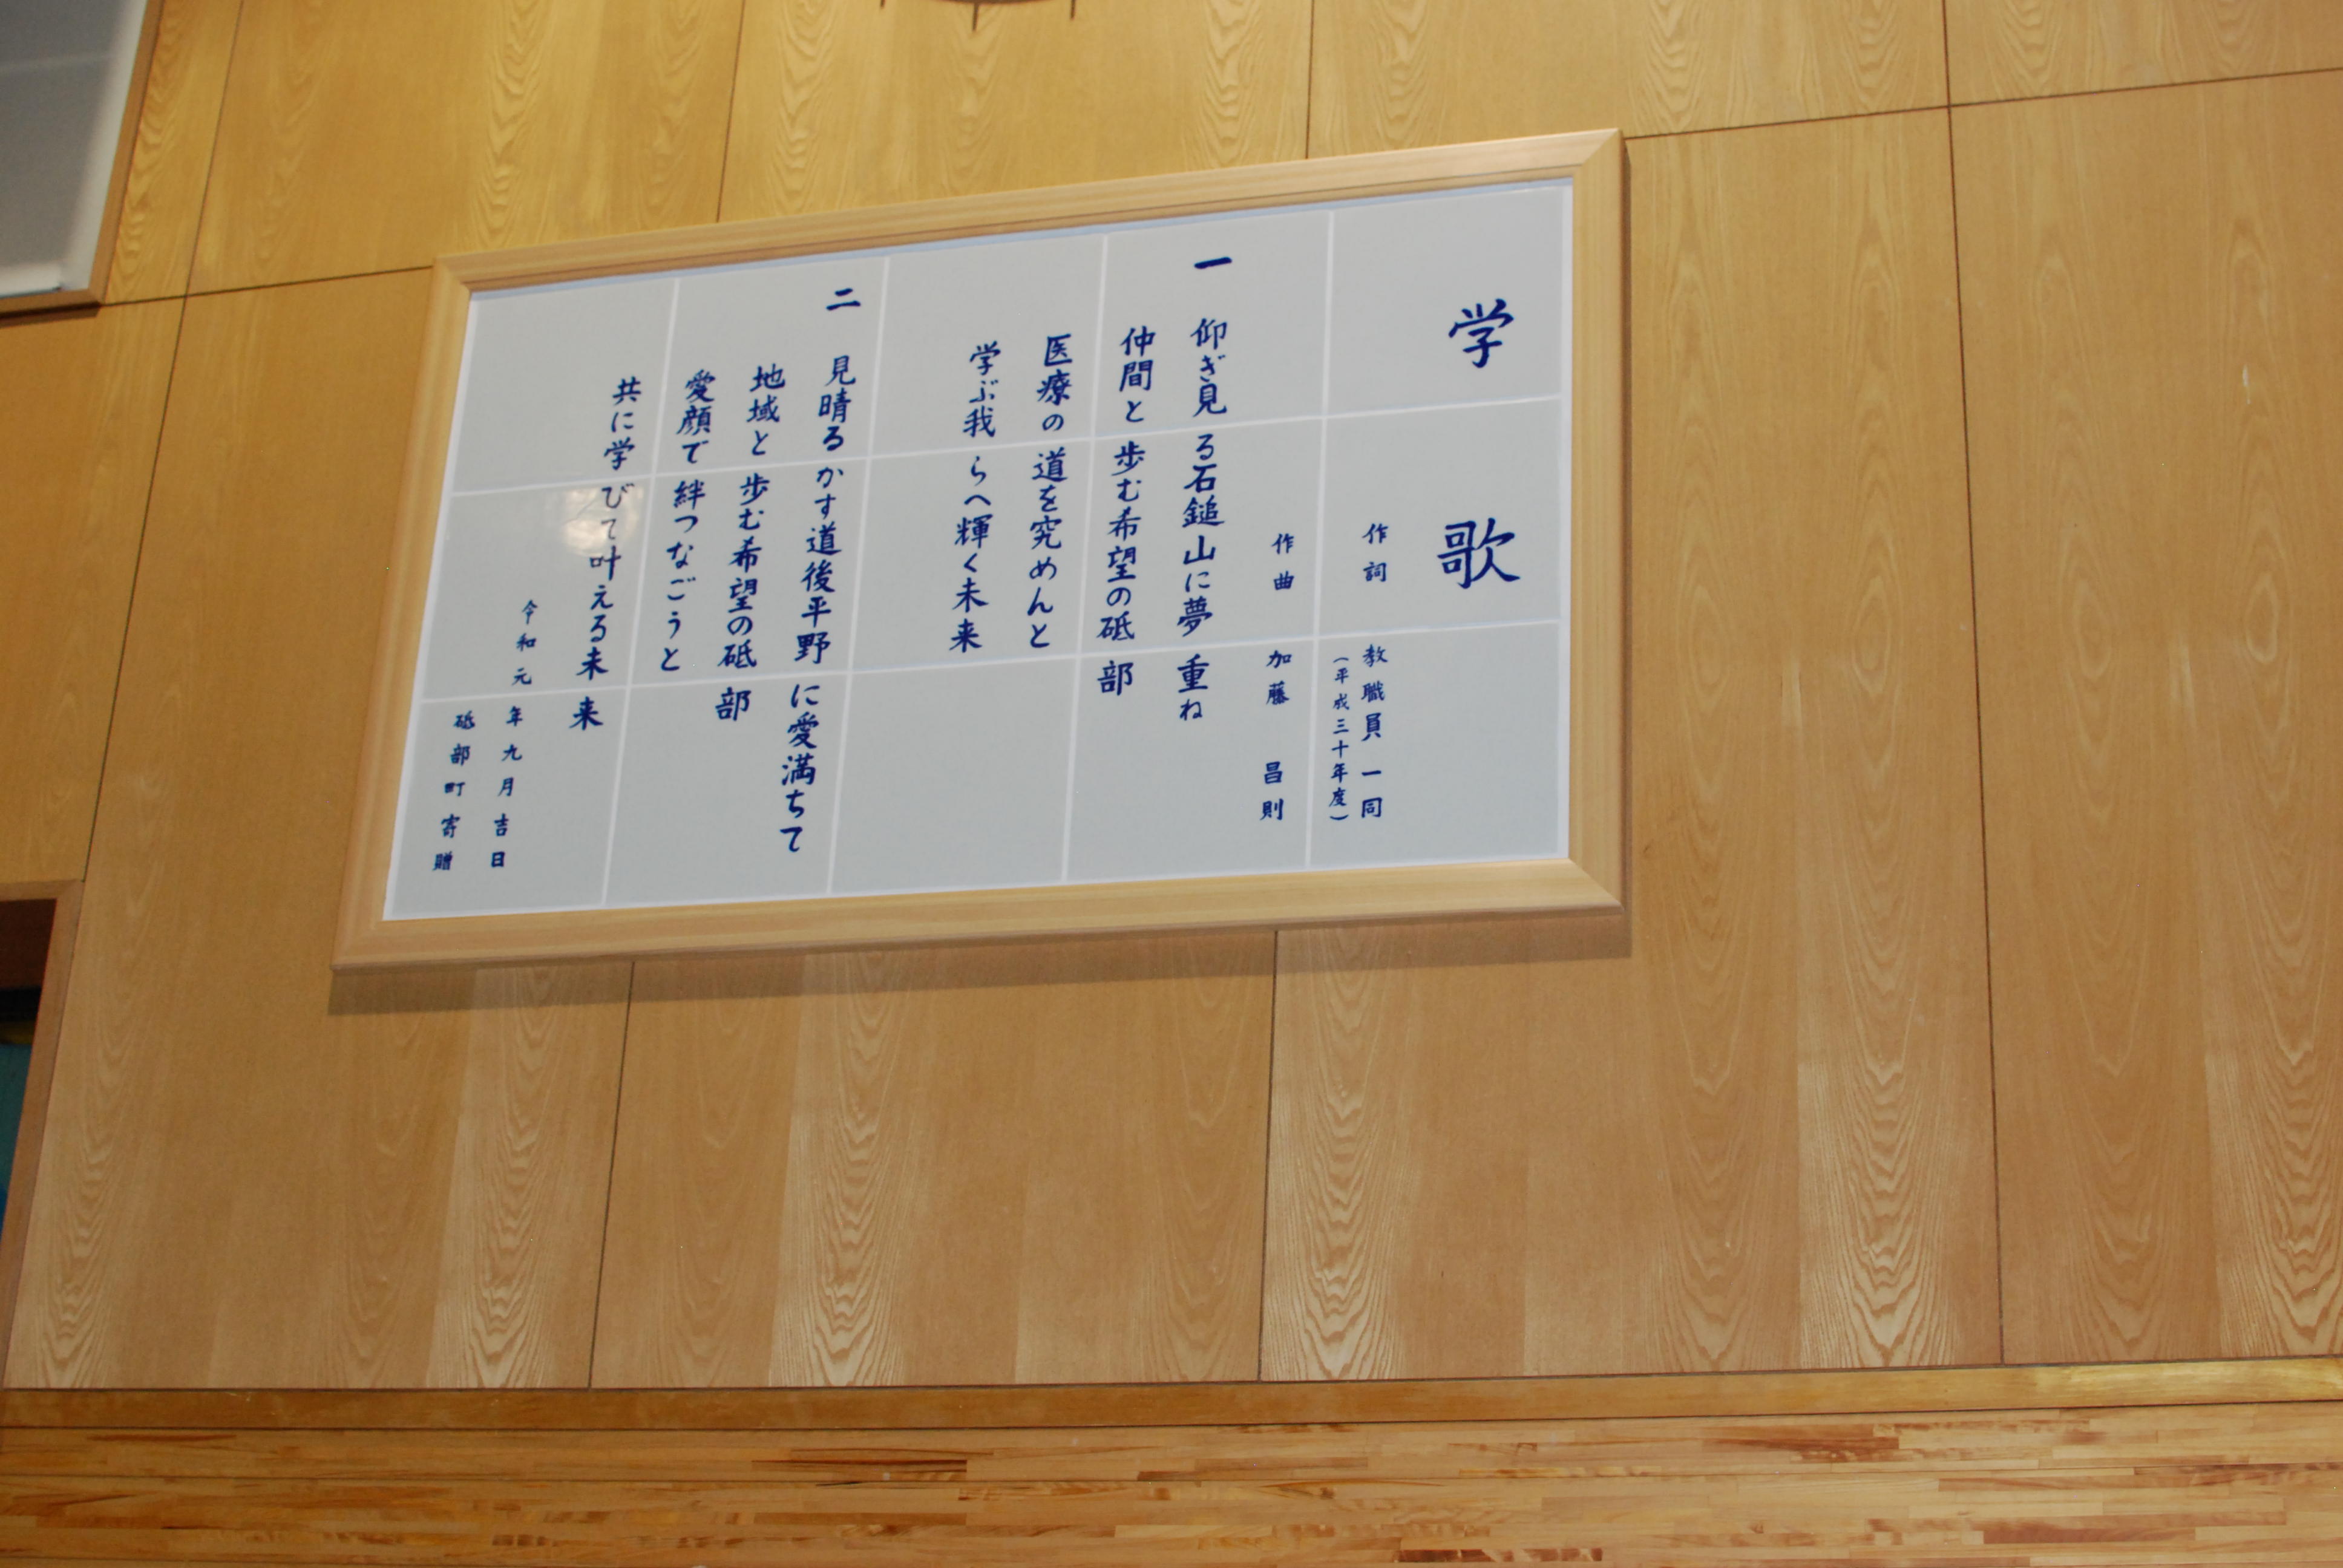 学歌
作詞 教職員一同
(平成三十年度)
作曲 加藤 昌則
一 仰ぎ見る石鎚山に夢重ね
仲間と歩む希望の砥部
医療の道を究めんと
学ぶ我らへ輝く未来
二 見晴るかす道後平野に愛満ちて
地域と歩む希望の砥部
愛顔で絆つなごうと
共に学びて叶える未来
令和元年九月吉日
砥部町寄贈